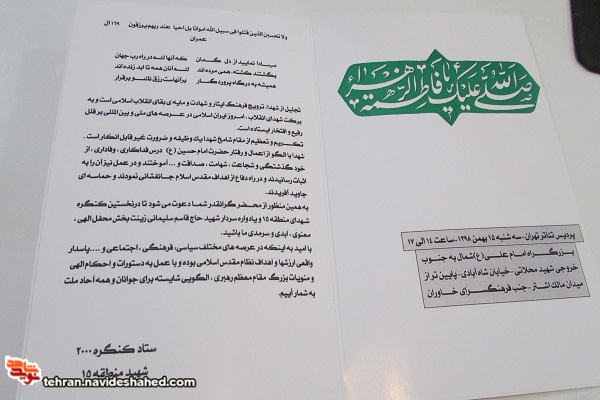 ولا تحسبن الذین قتلوا فی سبیل الله امواتا بل احیا عند ربهم یرزقون ۱۶۹ آل
عمران
مبادا نمایید از دل گمان که آنها که در راه رب جهان
بگشتند کشته، همی مرده اند که آنان همه تا ابد زنده اند
همیشه به درگاه پروردگار برآنهاست رزق نکو برقرار
تجلیل از شهدا، ترویج فرهنگ ایثار و شهادت و مایه ی بقای انقلاب اسلامی است و به
برکت شهدای انقلاب، امروز ایران اسلامی در عرصه های ملی و بین المللی بر قلل
رفیع و افتخار ایستاده است.
تکریم و تعظیم از مقام شامخ شهدا یک وظیفه و ضرورت غیر قابل انکار است.
شهدا با الگو از اعمال و رفتار حضرت امام حسین (ع) درس فداکاری، وفاداری، از
خود گذشتگی و شجاعت، شهامت، صداقت و ... آموختند و در عمل نیز آن را به
اثبات رسانیدند و در راه دفاع از اهداف مقدس اسلام جانفشانی نمودند و حماسه ای
جاوید آفریدند.
به همین منظور از محضر گرانقدر شما دعوت می شود تا درنخستین کنگره
شهدای منطقه ۱۵ و یادواره سردار شهید حاج قاسم سلیمانی زینت بخش محفل الهی،
معنوی، ابدی و سرمدی ما باشید.
با امید به اینکه در عرصه های مختلف سیاسی، فرهنگی، اجتماعی و .... پاسدار
واقعی ارزشها و اهداف نظام مقدس اسلامی بوده و با عمل به دستورات و احکام الهی
و منویات بزرگ مقام معظم رهبری، الگویی شایسته برای جوانان و همه آحاد ملت
به شمار آییم.
ستاد کنگره ۲۰۰۰
شهید منطقه ۱۵
صلی الله علیک یا فاطمة الزهراء
پردیس تئاتر تهران - سه شنبه ۱۵ بهمن ۱۳۹۸ - ساعت ۱۴ الی ۱۷
بزرگراه امام علی (ع) شمال به جنوب
خروجی شهید محلاتی - خیابان شاه آبادی - پایین تر از
میدان مالک اشتر - جنب فرهنگسرای خاوران
نوید شاهد
tehran.navideshahed.com